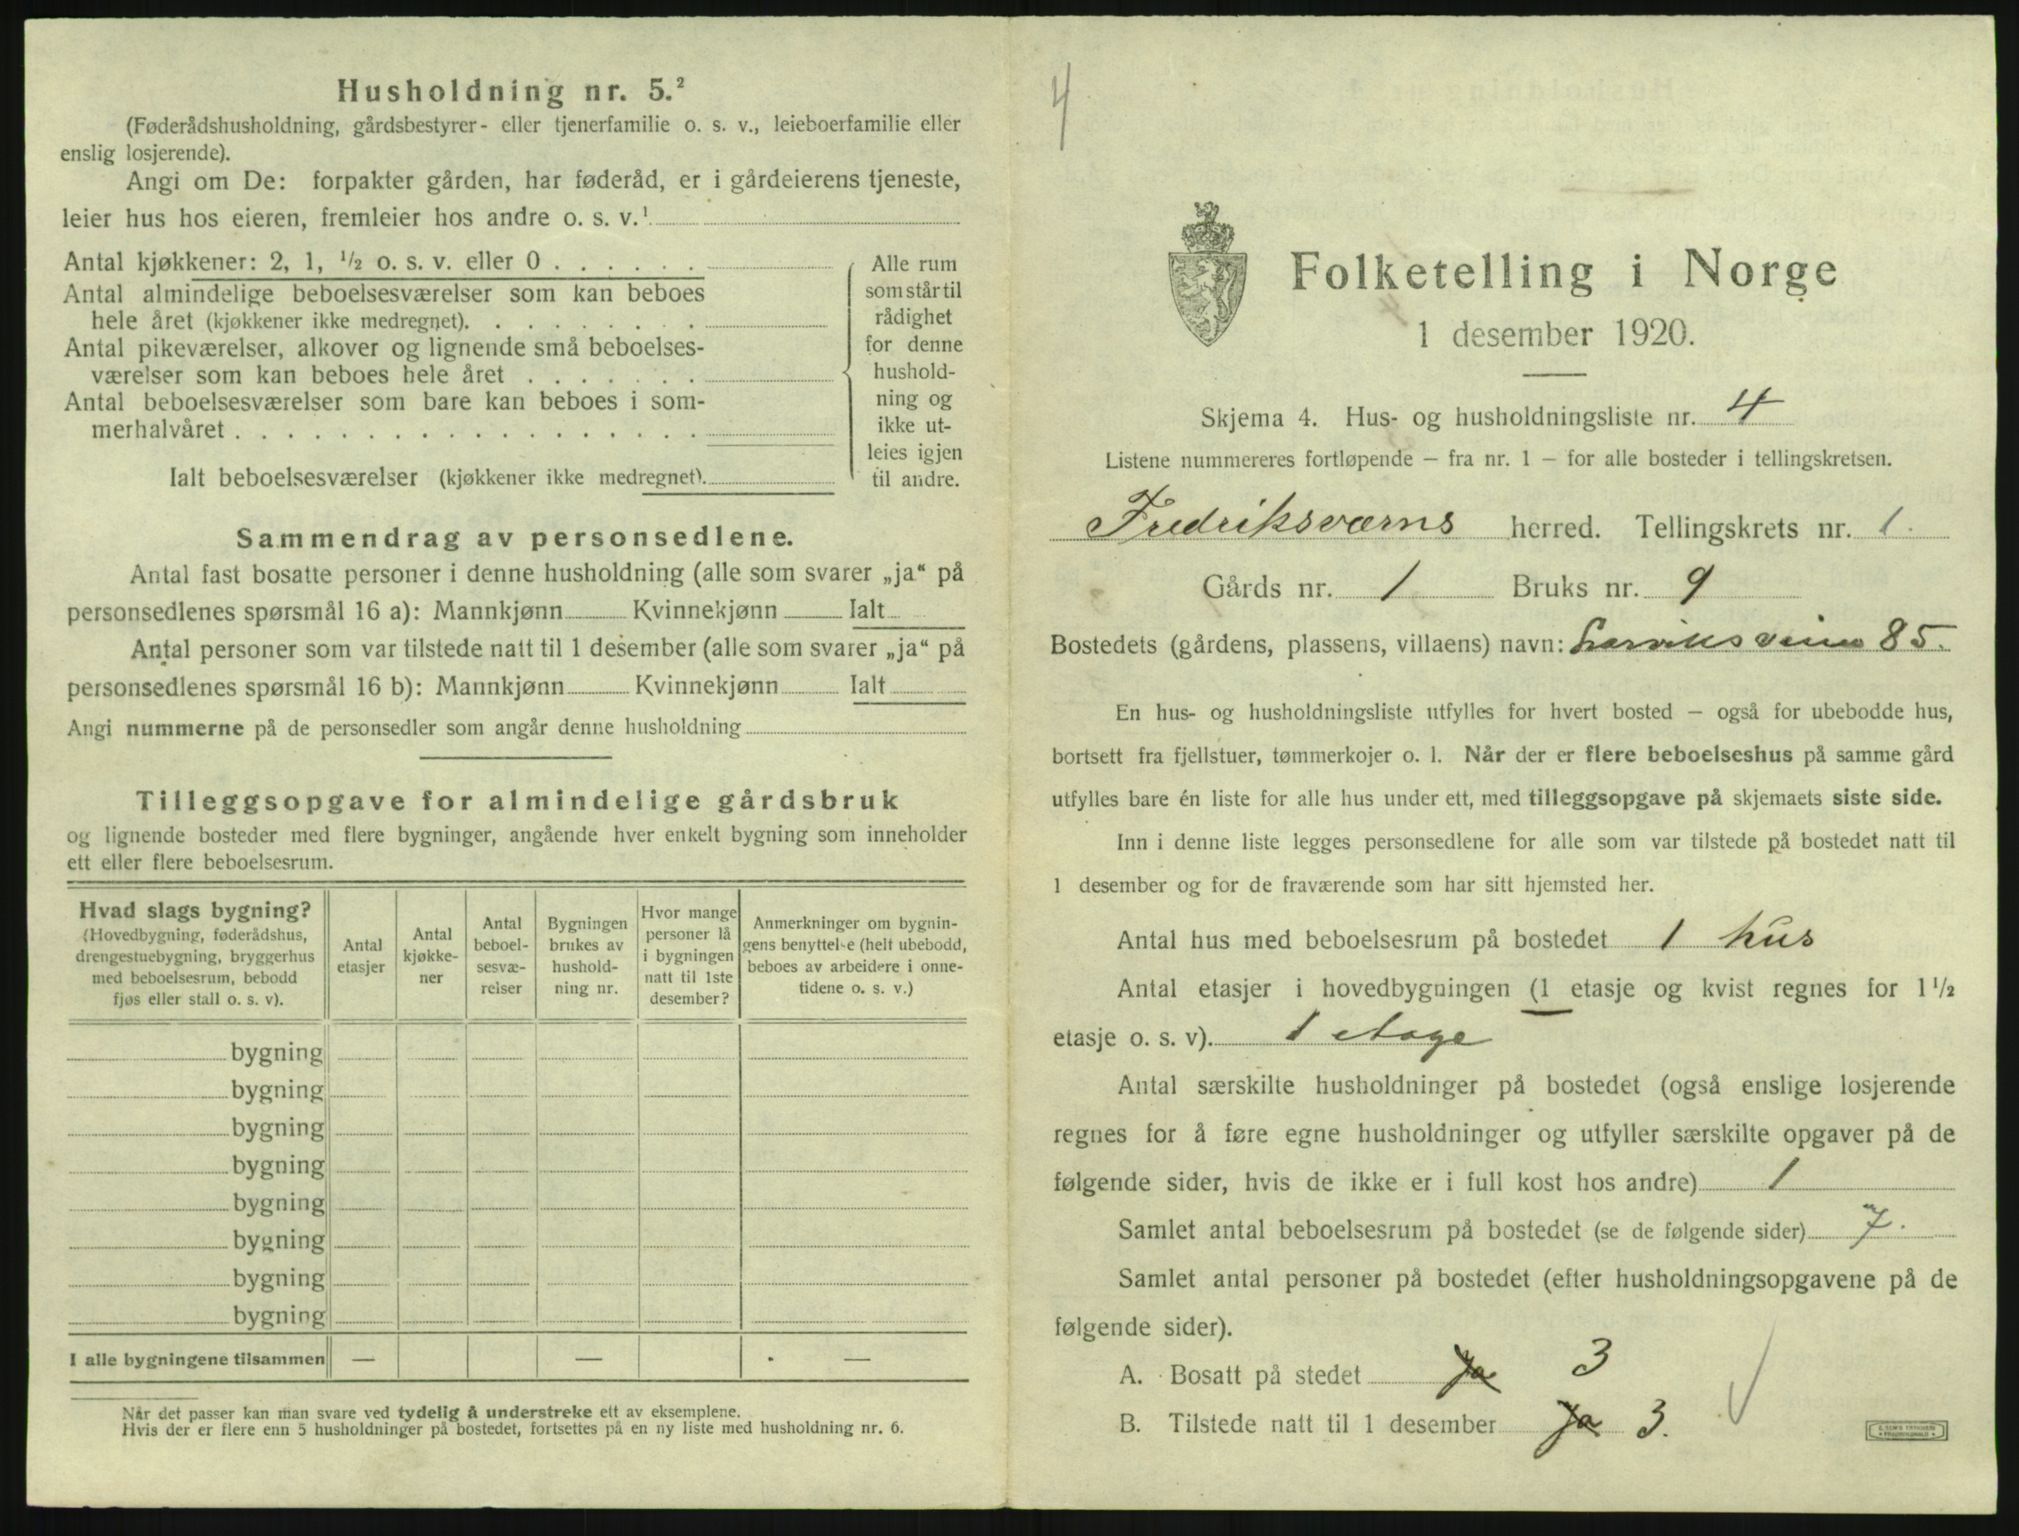 Husholdning nr. 5.²
(Føderådshusholdning, gårdsbestyrer- eller tjenerfamilie o. s. v., leieboerfamilie eller
enslig losjerende).
Angi om De: forpakter gården, har føderåd, er i gårdeierens tjeneste,
leier hus hos eieren, fremleier hos andre o. s. v.¹
Antal kjøkkener: 2, 1, ½ o. s. v. eller 0 . . . . . .
Antal almindelige beboelsesværelser som kan beboes
hele året (kjøkkener ikke medregnet). . . . . . . . .
Antal pikeværelser, alkover og lignende små beboelses-
værelser som kan beboes hele året . . . . . . .
Antal beboelsesværelser som bare kan beboes i som-
merhalvåret . . . . . . . . . . . . . . . . . .
Ialt beboelsesværelser (kjøkkener ikke medregnet).
Alle rum
som står til
rådighet
for denne
hushold-
ning og
ikke ut-
leies igjen
til andre.
Sammendrag av personsedlene.
Antal fast bosatte personer i denne husholdning (alle som svarer „ja“ på
personsedlenes spørsmål 16 a): Mannkjønn Kvinnekjønn Ialt
Antal personer som var tilstede natt til 1 desember (alle som svarer „ja“ på
personsedlenes spørsmål 16 b): Mannkjønn Kvinnekjønn Ialt
Angi nummerne på de personsedler som angår denne husholdning
Tilleggsopgave for almindelige gårdsbruk
og lignende bosteder med flere bygninger, angående hver enkelt bygning som inneholder
ett eller flere beboelsesrum.
Hvad slags bygning?
(Hovedbygning, føderådshus,
drengestuebygning, bryggerhus
med beboelsesrum, bebodd
fjøs eller stall o. s. v).
Antal
etasjer
Antal
kjøkke-
ner
Antal
beboel-
sesvæ-
relser
Bygningen
brukes av
hushold-
ning nr.
Hvor mange
personer lå
i bygningen
natt til 1ste
desember?
Anmerkninger om bygnin-
gens benyttelse (helt ubebodd,
beboes av arbeidere i onne-
tidene o. s. v.)
bygning
bygning
bygning
bygning
bygning
bygning
bygning
bygning
I alle bygningene tilsammen — — —
Når det passer kan man svare ved tydelig å understreke ett av eksemplene.
Hvis der er flere enn 5 husholdninger på bostedet, fortsettes på en ny liste med husholdning nr. 6.
4
Folketelling i Norge
1 desember 1920.
Skjema 4. Hus- og husholdningsliste nr. 4
Listene nummereres fortløpende – fra nr. 1 – for alle bosteder i tellingskretsen.
Fredriksværns herred. Tellingskrets nr. 1.
Gårds nr. 1 Bruks nr. 9
Bostedets (gårdens, plassens, villaens) navn: Larviksveien 85.
En hus- og husholdningsliste utfylles for hvert bosted – også for ubebodde hus,
bortsett fra fjellstuer, tømmerkojer o. l. Når der er flere beboelseshus på samme gård
utfylles bare én liste for alle hus under ett, med tilleggsopgave på skjemaets siste side.
Inn i denne liste legges personsedlene for alle som var tilstede på bostedet natt til
1 desember og for de fraværende som har sitt hjemsted her.
Antal hus med beboelsesrum på bostedet 1 hus
Antal etasjer i hovedbygningen (1 etasje og kvist regnes for 1½
etasje o. s. v). 1 etage
Antal særskilte husholdninger på bostedet (også enslige losjerende
regnes for å føre egne husholdninger og utfyller særskilte opgaver på de
følgende sider, hvis de ikke er i full kost hos andre) 1
Samlet antal beboelsesrum på bostedet (se de følgende sider) 7.
Samlet antal personer på bostedet (efter husholdningsopgavene på de
følgende sider).
A. Bosatt på stedet ja 3
B. Tilstede natt til 1 desember ja 3.